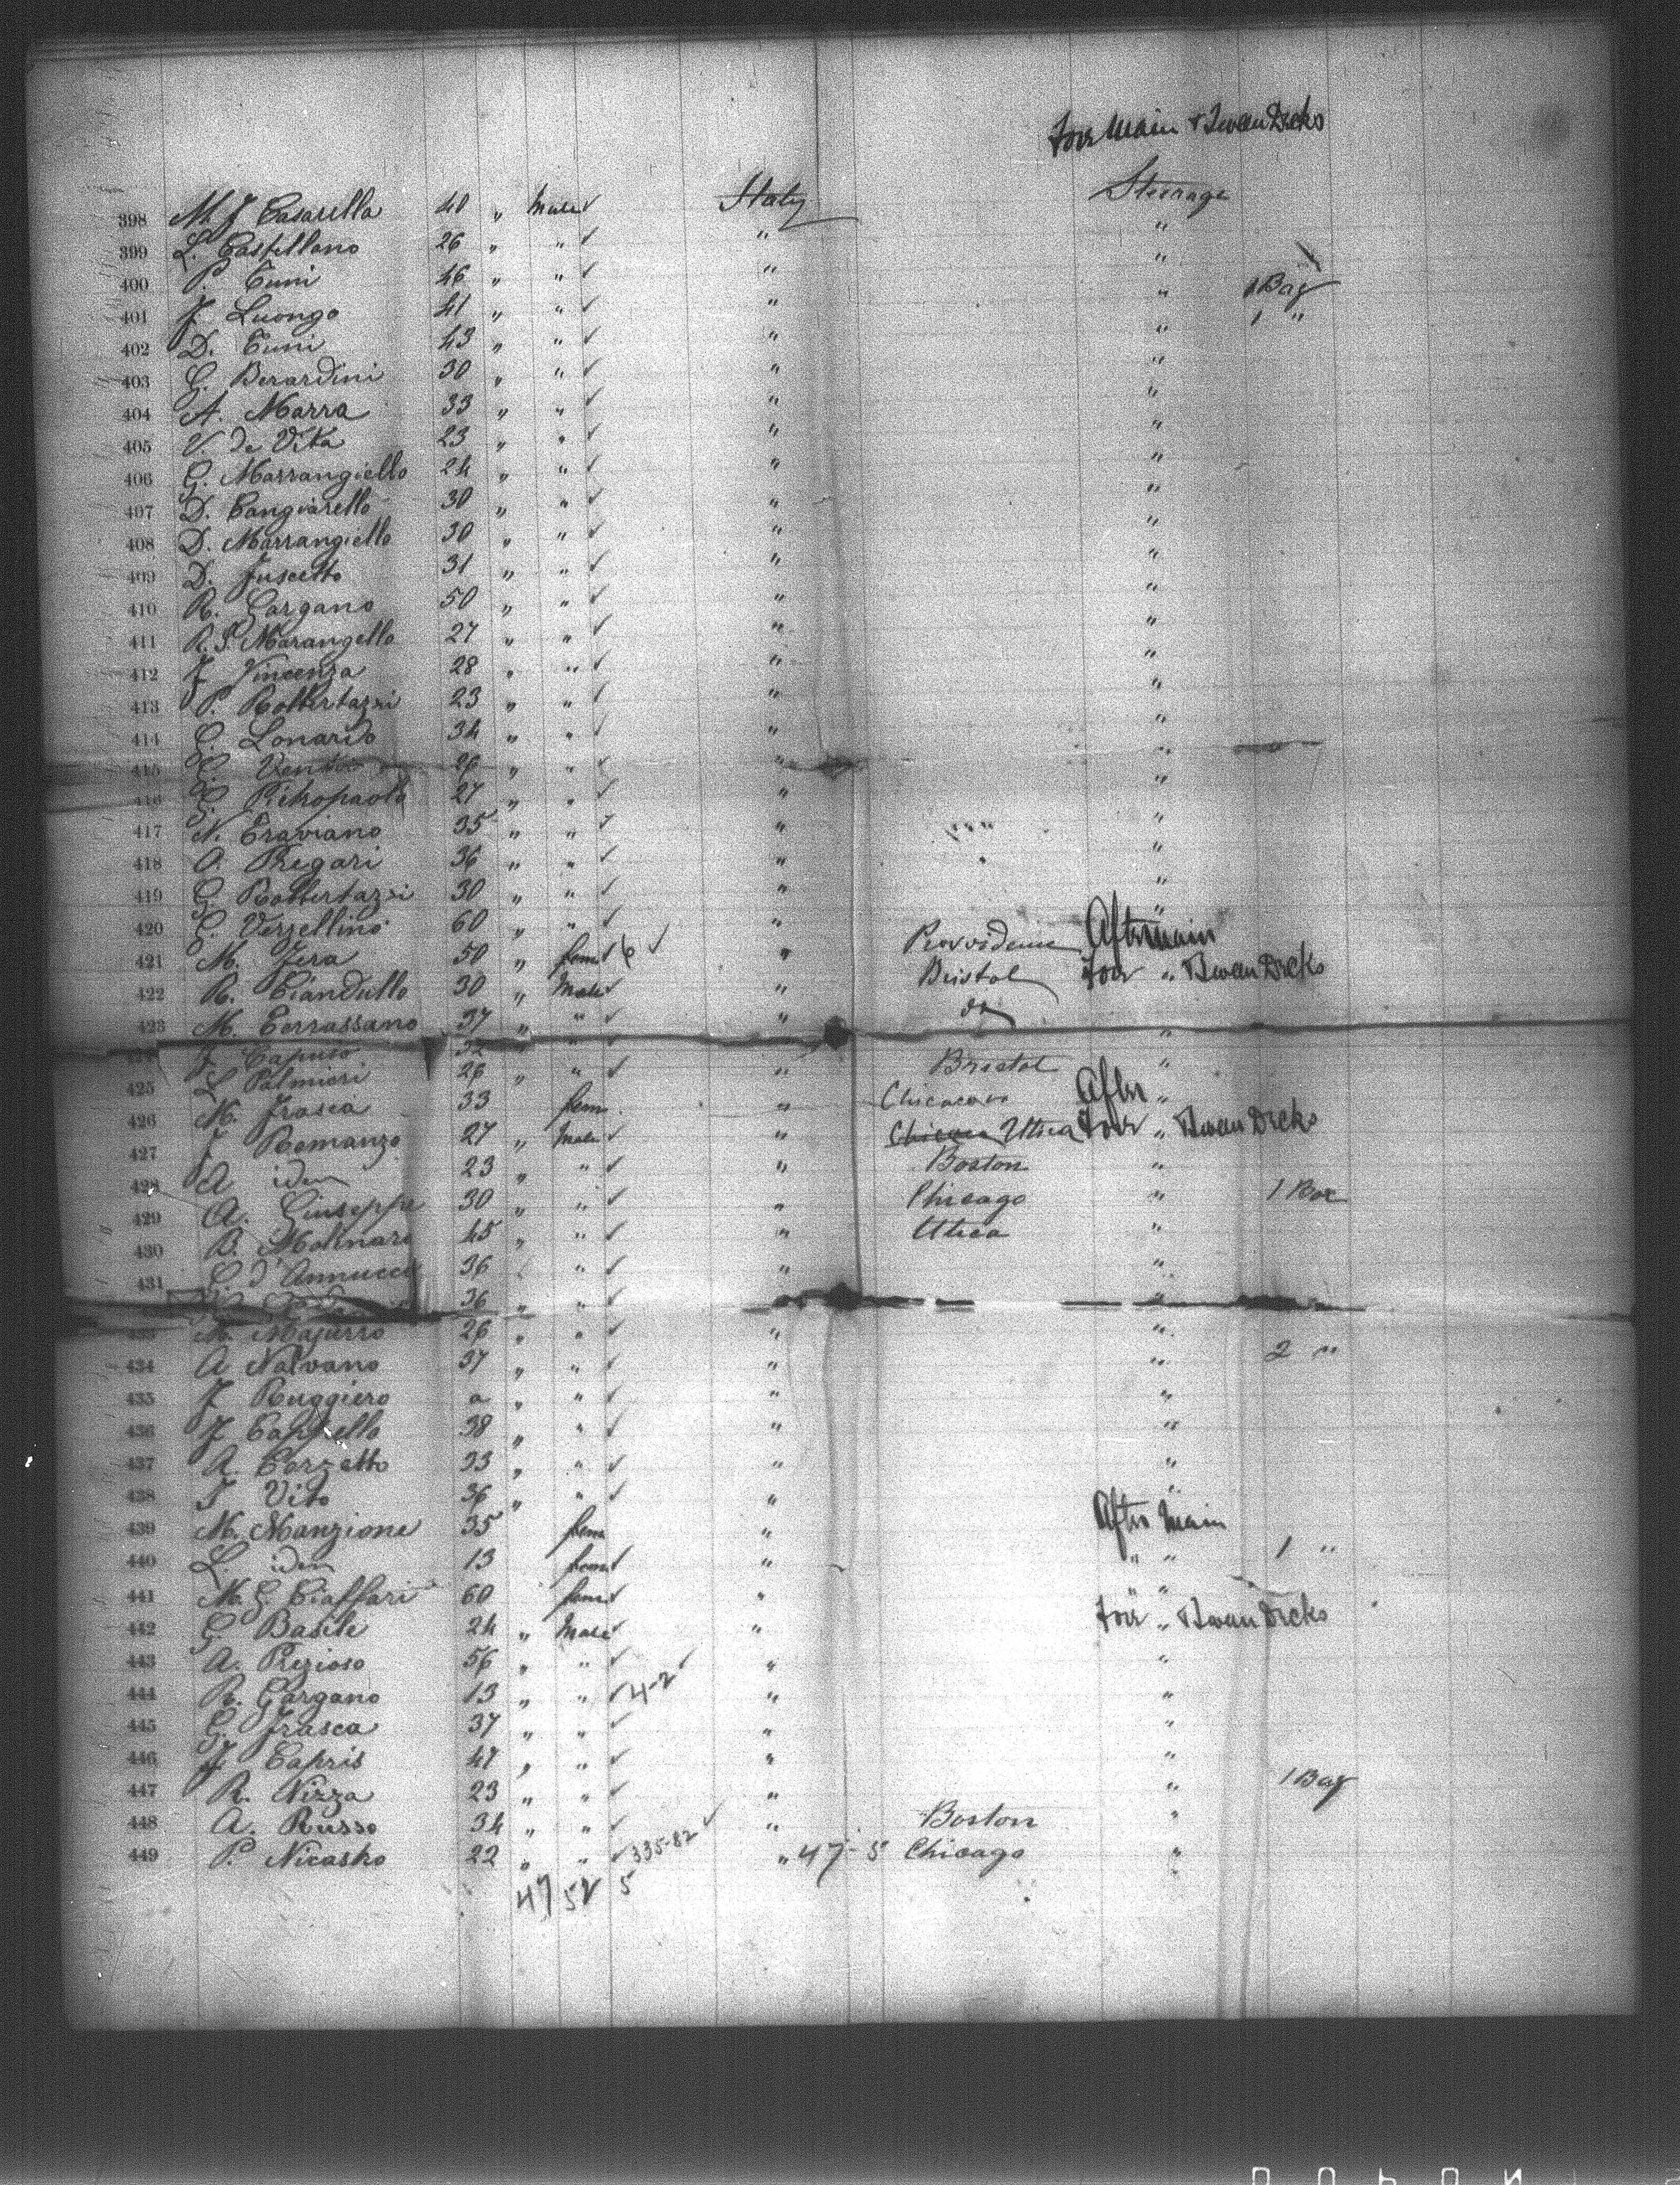 For Main & Tween Decks
398 M. J. Casarella 40 " Male ✓ Italy Steerage
399 L. Castellano 26 " " ✓ " "
400 P. Cuni 46 " " ✓ " "
401 J. Luongo 41 " " ✓ " " 1 Bag
402 D. Cuni 43 " " ✓ " " 1 "
403 G. Berardini 30 " " ✓ " "
404 A. Marra 33 " " ✓ " "
405 V. de Vita 23 " " ✓ " "
406 G. Marrangiello 24 " " ✓ " "
407 D. Cangiarello 30 " " ✓ " "
408 D. Marrangiello 30 " " ✓ " "
409 D. Fuscetto 31 " " ✓ " "
410 R. Gargano 50 " " ✓ " "
411 R. S. Marangello 27 " " ✓ " "
412 F. Vincenza 28 " " ✓ " "
413 P. Robbertazzi 23 " " ✓ " "
414 C. Lonardo 34 " " ✓ " "
415 26 " " ✓ " "
416 G. Pietropaolo 27 " " ✓ " "
417 N. Craviano 35 " " ✓ " "
418 O. Pregari 36 " " ✓ " "
419 G. Robbertazzi 30 " " ✓ " "
420 C. Verzellino 60 " " ✓ " "
421 M. Zera 50 " fem ✓ 6 ✓ " Providence After main
422 R. Ciandullo 30 " Male ✓ " Bristol For " Tween Decks
423 M. Corrassano 37 " " ✓ " do "
J. Capuso 32 "
425 L. Palmieri 26 " " ✓ " Bristol "
426 M. Frasca 33 fem " Chicago After "
427 J. Romanzo 27 " Male ✓ " Utica For " Tween Decks
428 A idem 23 " " ✓ " Boston "
429 A. Giuseppe 30 " " ✓ " Chicago " 1 Box
430 B. Molinari 45 " " ✓ " Utica "
431 C. d'Annucci 36 " ✓ " "
36 " " ✓ "
433 M. Majurro 26 " " ✓ " "
434 A Nalvano 37 " " ✓ " " 2 "
435 F Ruggiero a " " ✓ " "
436 F Cappello 38 " " ✓ " "
437 A. Corzetto 33 " " ✓ " "
438 F Vito 36 " " ✓ " "
439 M. Manzione 35 fem " After Main
440 L. idem 13 fem ✓ " " " 1 "
441 M. G. Ciaffari 60 fem ✓ " " "
442 G. Basile 24 " Male ✓ " For " Tween Decks
443 A. Prezioso 56 " " ✓ " "
444 R. Gargano 13 " " ✓ 4-2 ✓ " "
445 G. Frasca 37 " " ✓ " "
446 F Capris 47 " " ✓ " "
447 R. Nizza 23 " " ✓ " " 1 Bag
448 A. Russo 34 " " ✓ " Boston "
449 P. Nicastro 22 " " ✓ 335-82 ✓ " 47-5 Chicago "
47 52 5